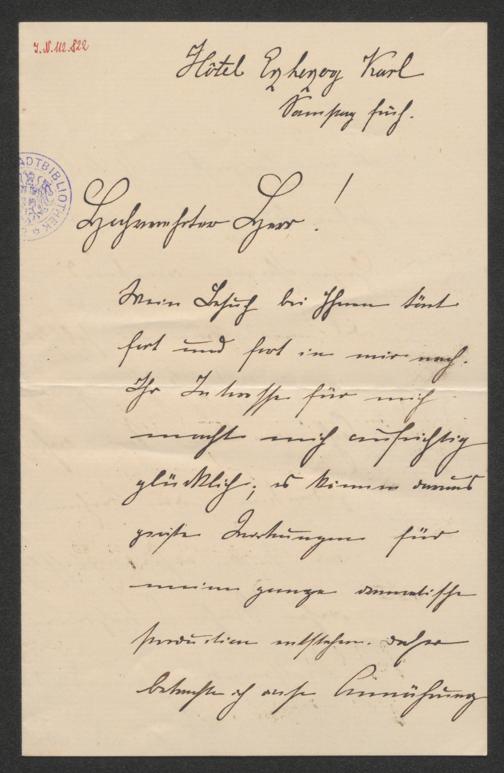 J.N. 112.822
STADTBIBLIOTHEK
Hôtel Erzherzog Karl
Samstag früh.
Hochverehrter Herr!
Mein Besuch bei Ihnen tönt
fort und fort in mir nach.
Ihr Interesse für mich
macht mich aufrichtig
glücklich; es können daraus
große Wirkungen für
meine ganze dramatische
Production entstehen. Daher
betrachte ich unsre Annäherung